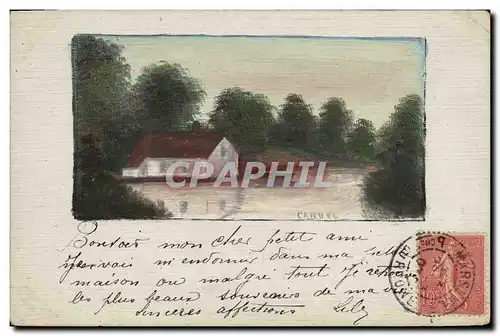 CAPHIL
CARUEL
Bonsoir mon cher petit ami
Je vais m'endormir dans ma petite
maison ou malgré tout je
les plus beaux souvenirs de ma vie
sincères affections Lily